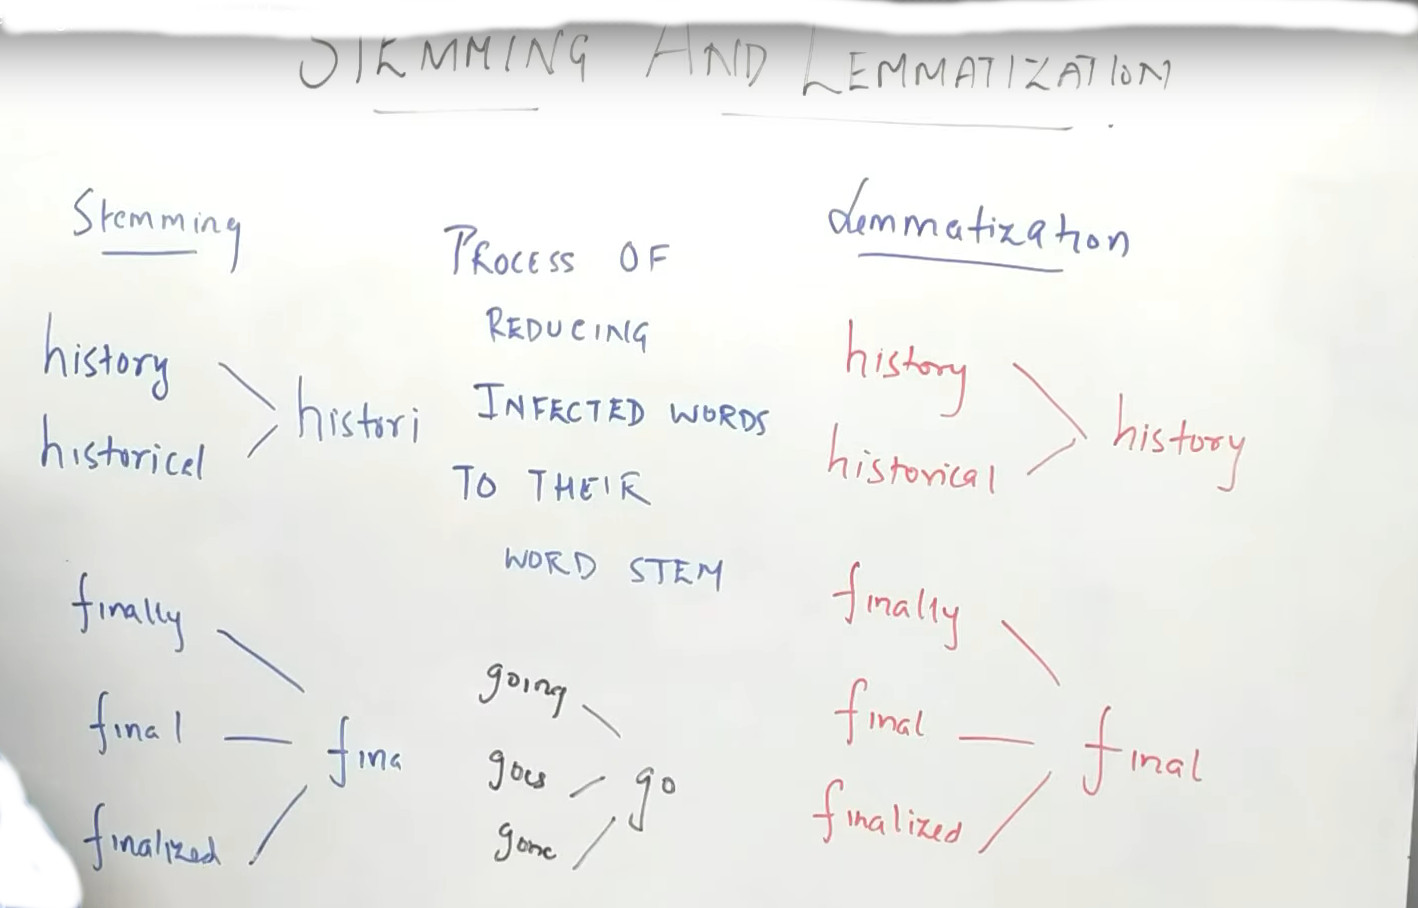 STEMMING AND LEMMATIZATION
Stemming
history
historical
histori
finally
final
fina
finalized
PROCESS OF
REDUCING
INFECTED WORDS
TO THEIR
WORD STEM
going
goes
go
gone
Lemmatization
history
historical
history
finally
final
final
finalized